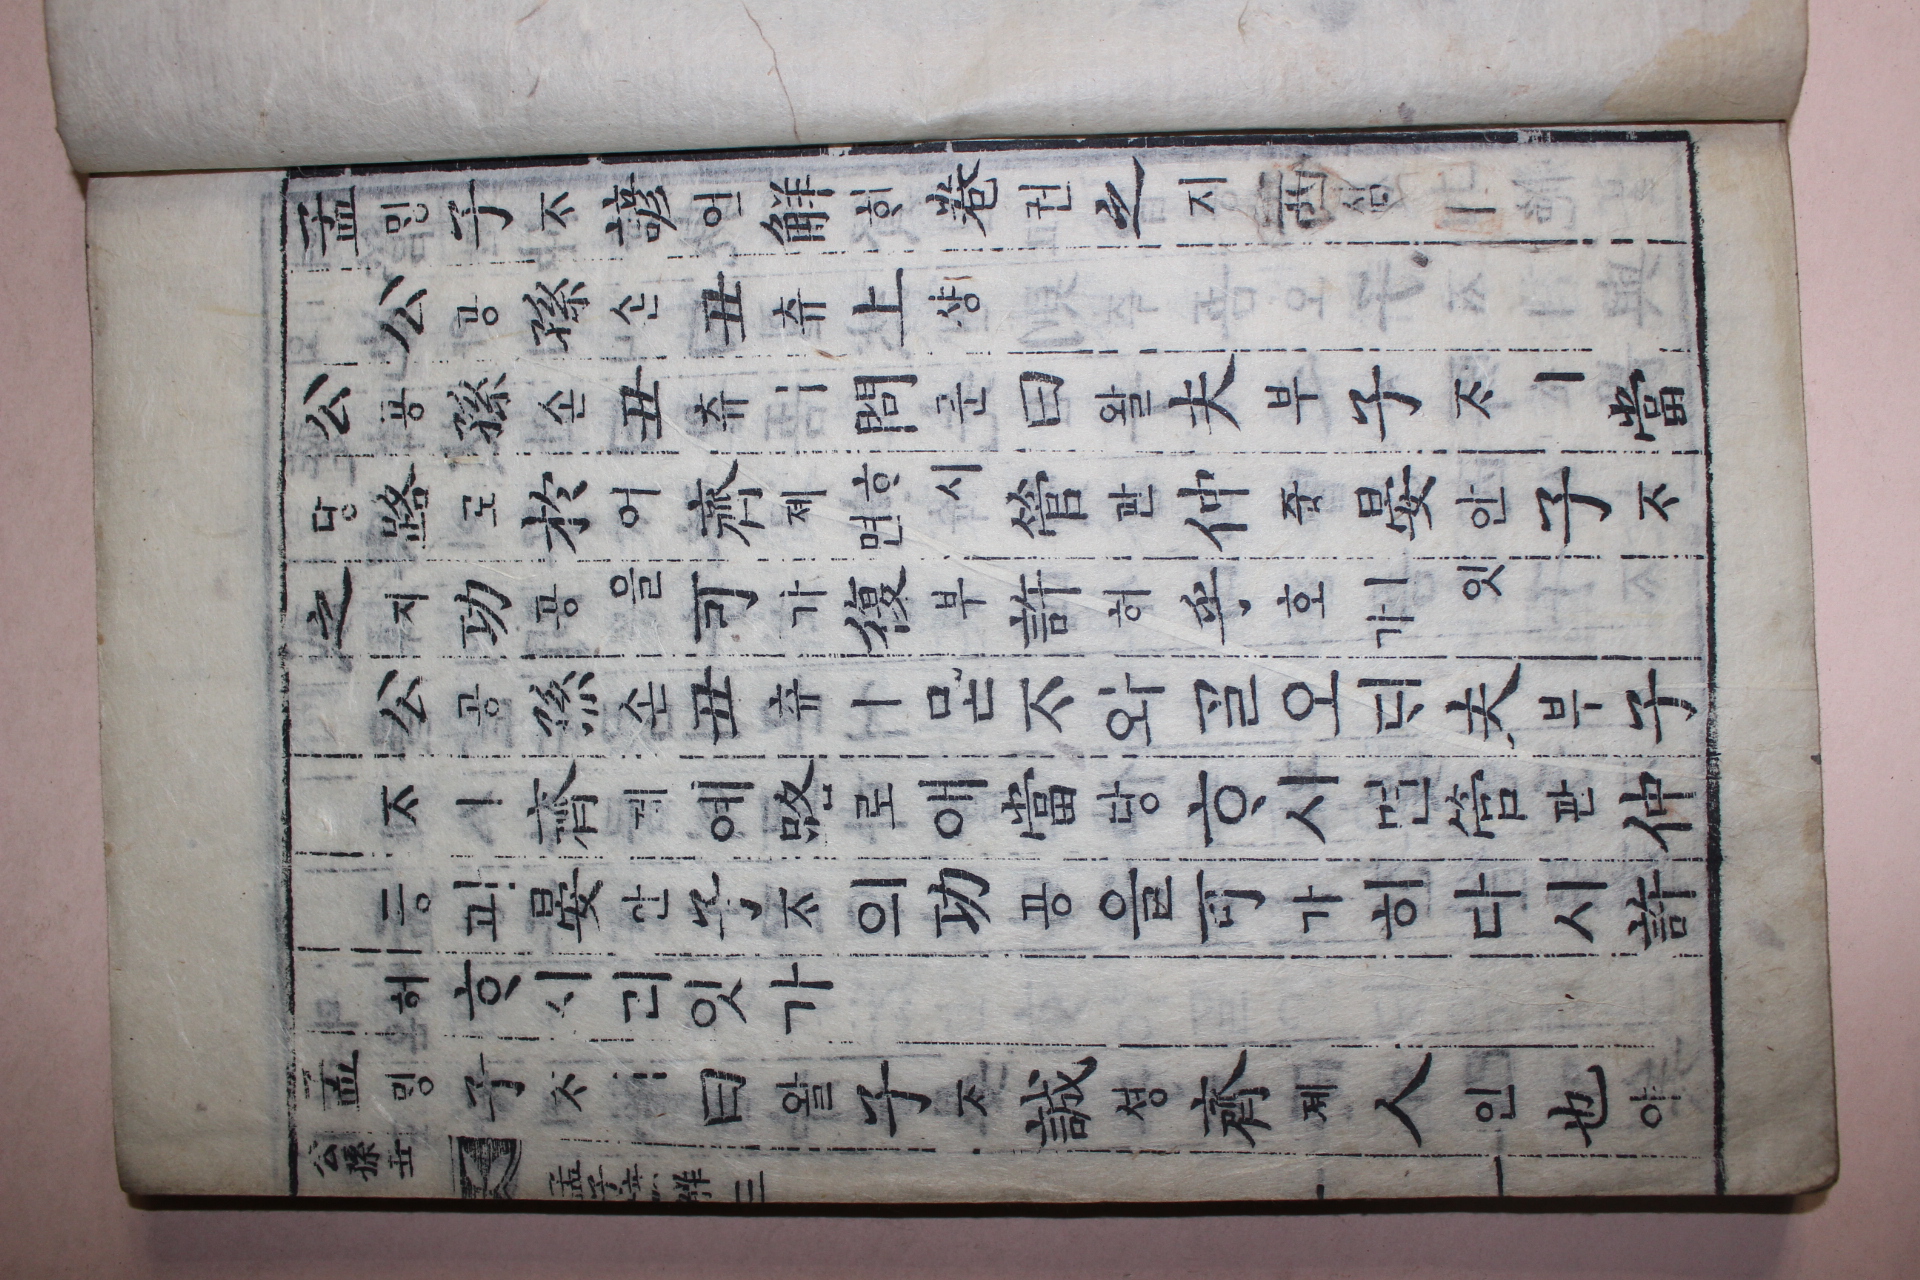 孟밍子ᄌᆞ諺언解ᄒᆡ卷권之지三삼
公공孫손丑츄上샹
公공孫손丑츄ㅣ問문曰왈夫부子ᄌᆞㅣ當
당路로於어齊졔면ᄒᆞ시管관仲즁晏안子ᄌᆞ
之지功공을可가復부許허乎호ㅣ가잇
公공孫손丑츄ㅣ묻ᄌᆞ와ᄀᆞᆯ오ᄃᆡ夫부子
ᄌᆞㅣ齊졔예路로애當당ᄒᆞ시면管관仲
듕과晏안子ᄌᆞ의功공을可가히다시許
허ᄒᆞ시리잇가
孟밍子ᄌᆞㅣ曰왈子ᄌᆞ誠셩齊졔人인也야
公孫丑 孟子諺解 三